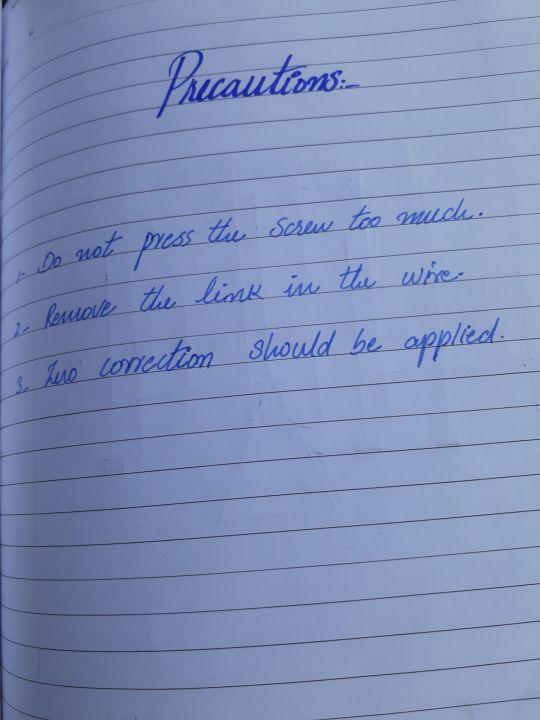 Precautions:-
1- Do not press the screw too much.
2- Remove the link in the wire.
3- Zero correction should be applied.